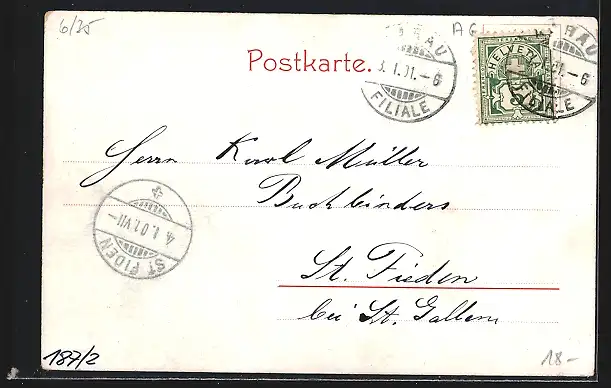 6/35
AG
Postkarte.
RAU
3.I.01.–6
FILIALE
HELVETIA
5
RAU
01.–6
FILIALE
Herrn Karl Müller
Buchbinders
St. Fieden
bei St. Gallen
4.I.01.VII–
ST FIDEN
187/2
18–